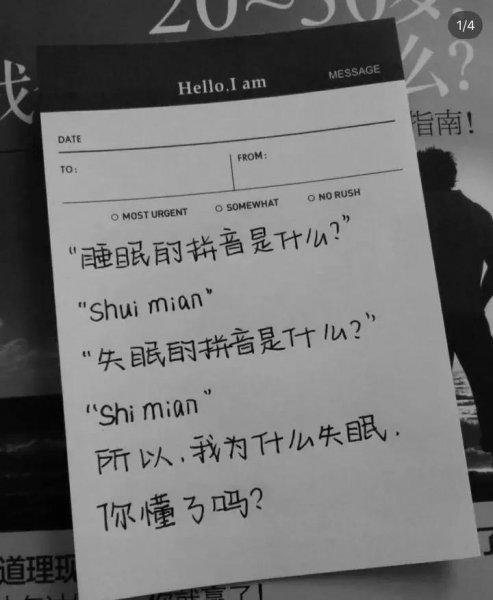 1/4
20~30岁,
我
么?
指南!
Hello,I am
MESSAGE
DATE
TO:
FROM:
MOST URGENT
SOMEWHAT
NO RUSH
“睡眠的拼音是什么?”
“Shui mian”
“失眠的拼音是什么?”
“Shi mian”
所以,我为什么失眠.
你懂了吗?
道理现